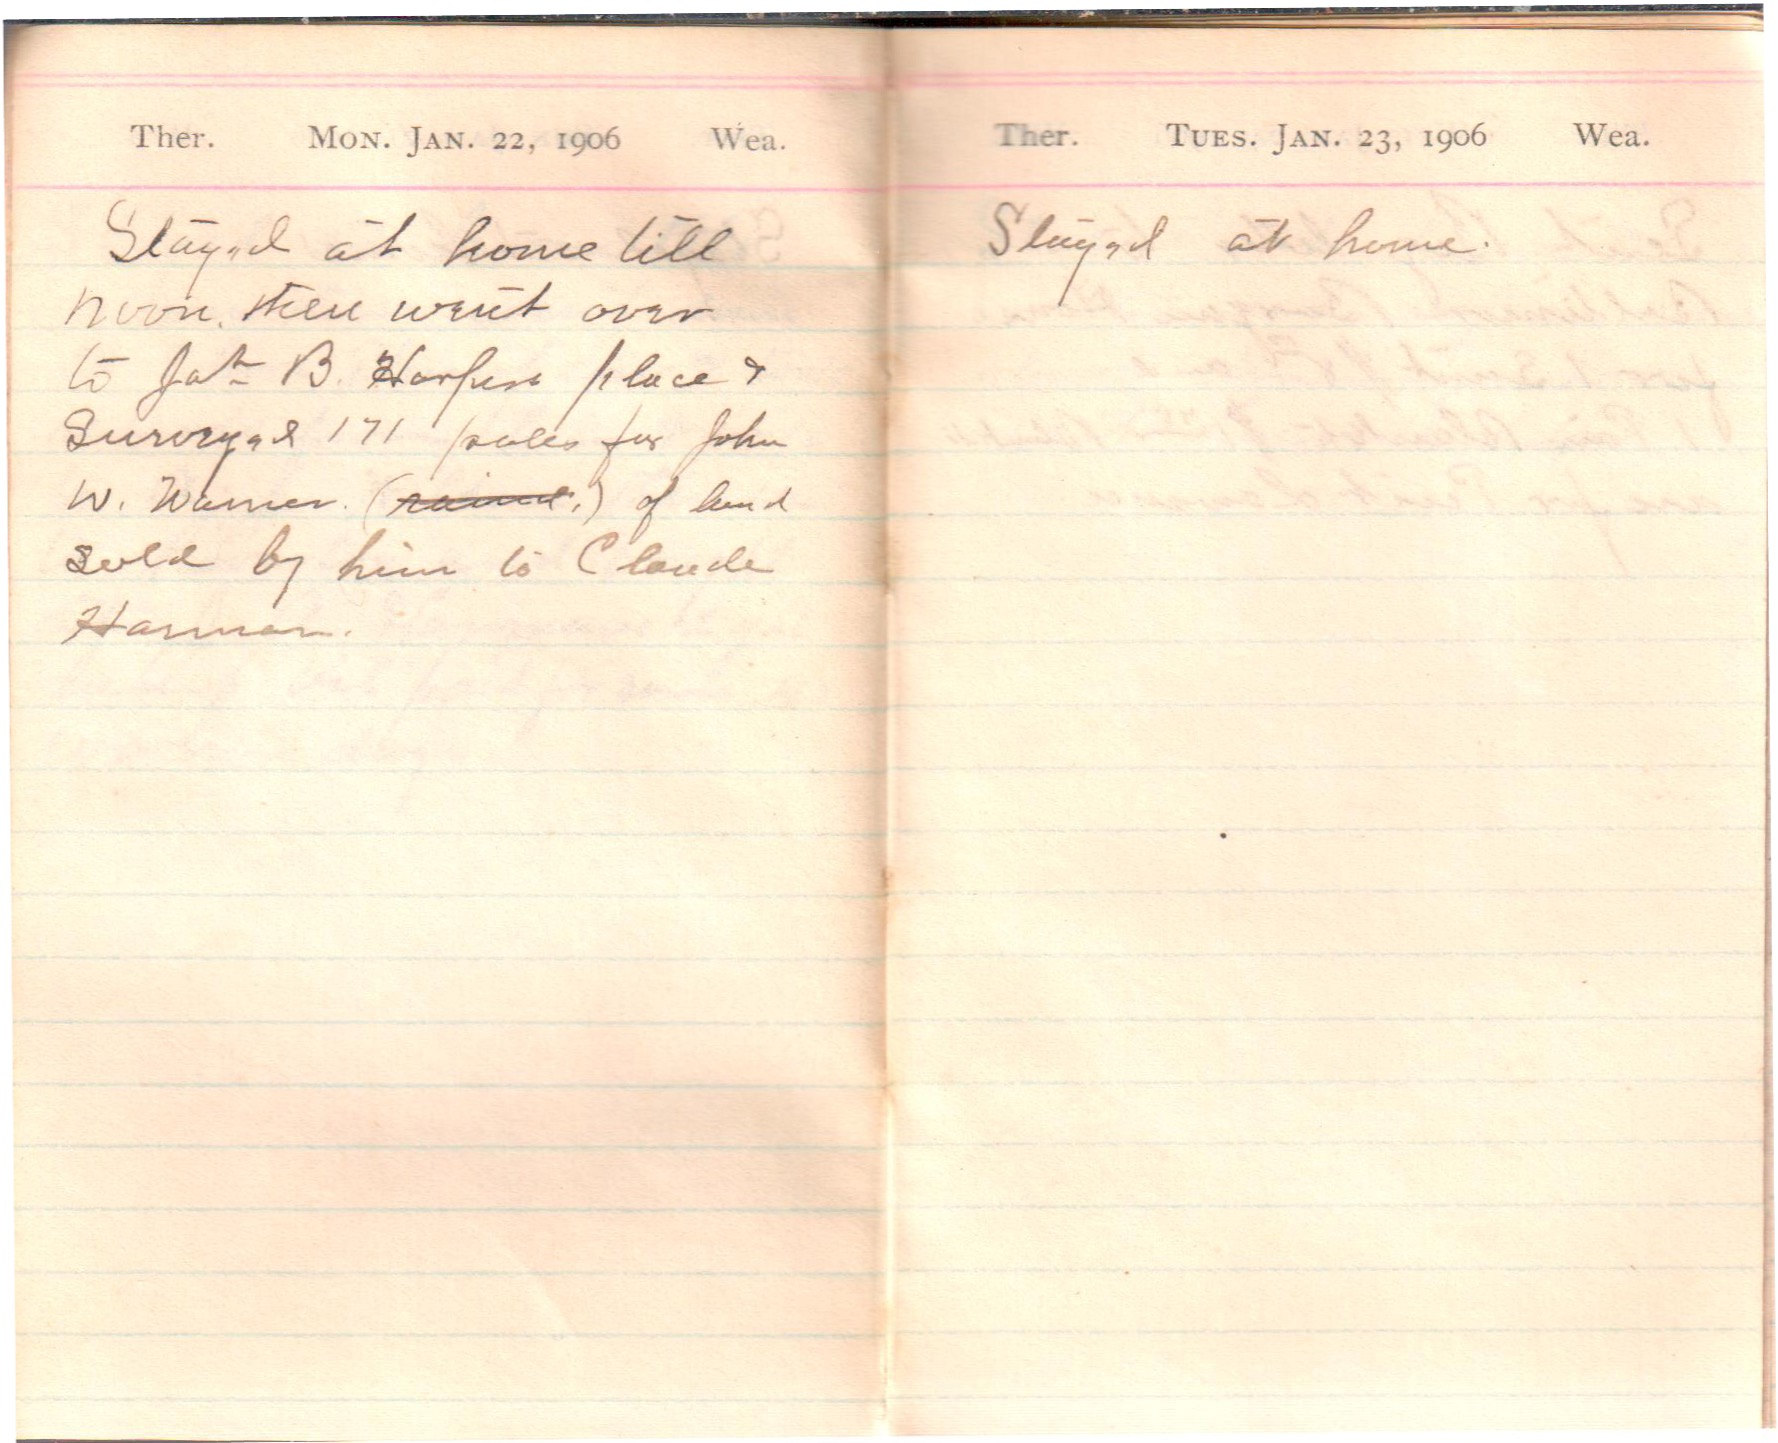 Ther. MON. JAN. 22, 1906 Wea.
Stayed at home till
noon. then went over
to B. Harpers place &
Surveyed 171 poles for John
W. Warner. (rained.) of land
sold by him to Claude
Harman.
Ther. TUES. JAN. 23, 1906 Wea.
Stayed at home.